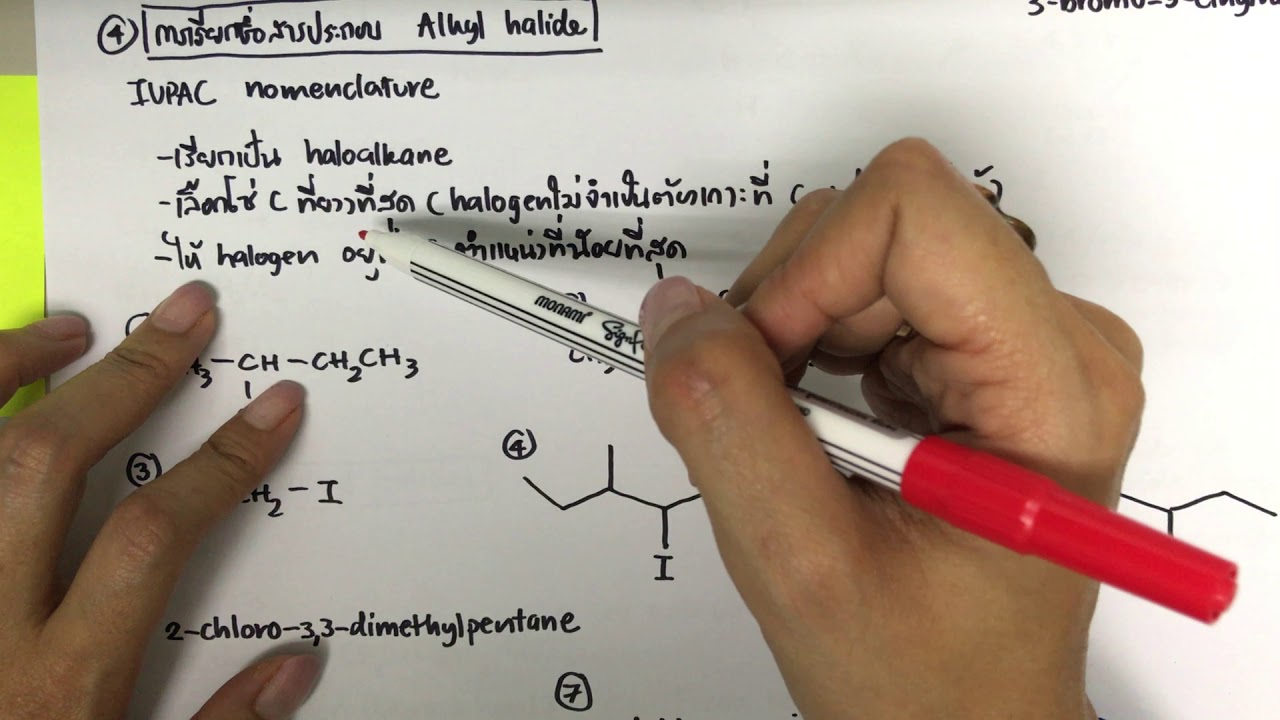 ④ การเรียกชื่อสารประกอบ Alkyl halide
IUPAC nomenclature
-เรียกเป็น haloalkane
-เลือกโซ่ C ที่ยาวที่สุด (halogenไม่จำเป็นต้องเกาะที่ C
-ให้ halogen ตำแหน่งที่น้อยที่สุด
-CH-CH₂CH₃
③
H₂-I
④
I
2-chloro-3,3-dimethylpentane
⑦
MONAMI